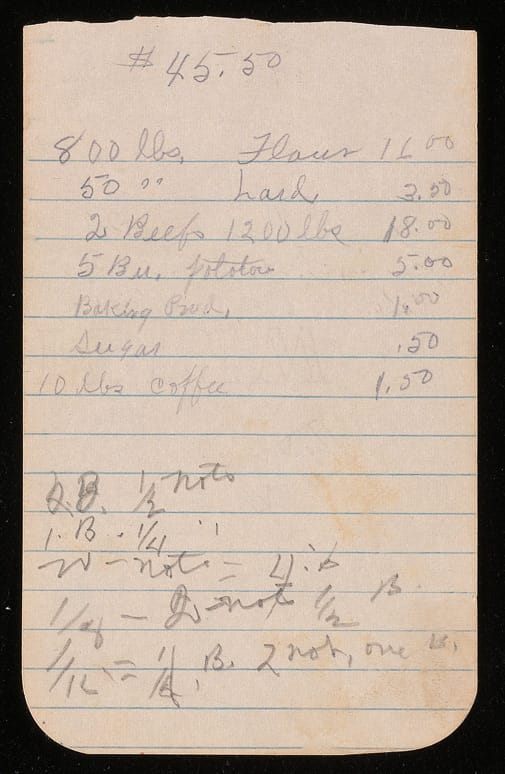 # 45.50
800 lbs. Flour 16.00
50 " Lard 3.50
2 Beefs 1200 lbs 18.00
5 Bu. Pototoe 5.00
Baking Powd. 1.00
Sugar .50
10 lbs coffee 1.50
B. 1/2 note
1. B. 1/4 "
note = 4
1/8 - note 1/2 B.
B. 2 not, one B.